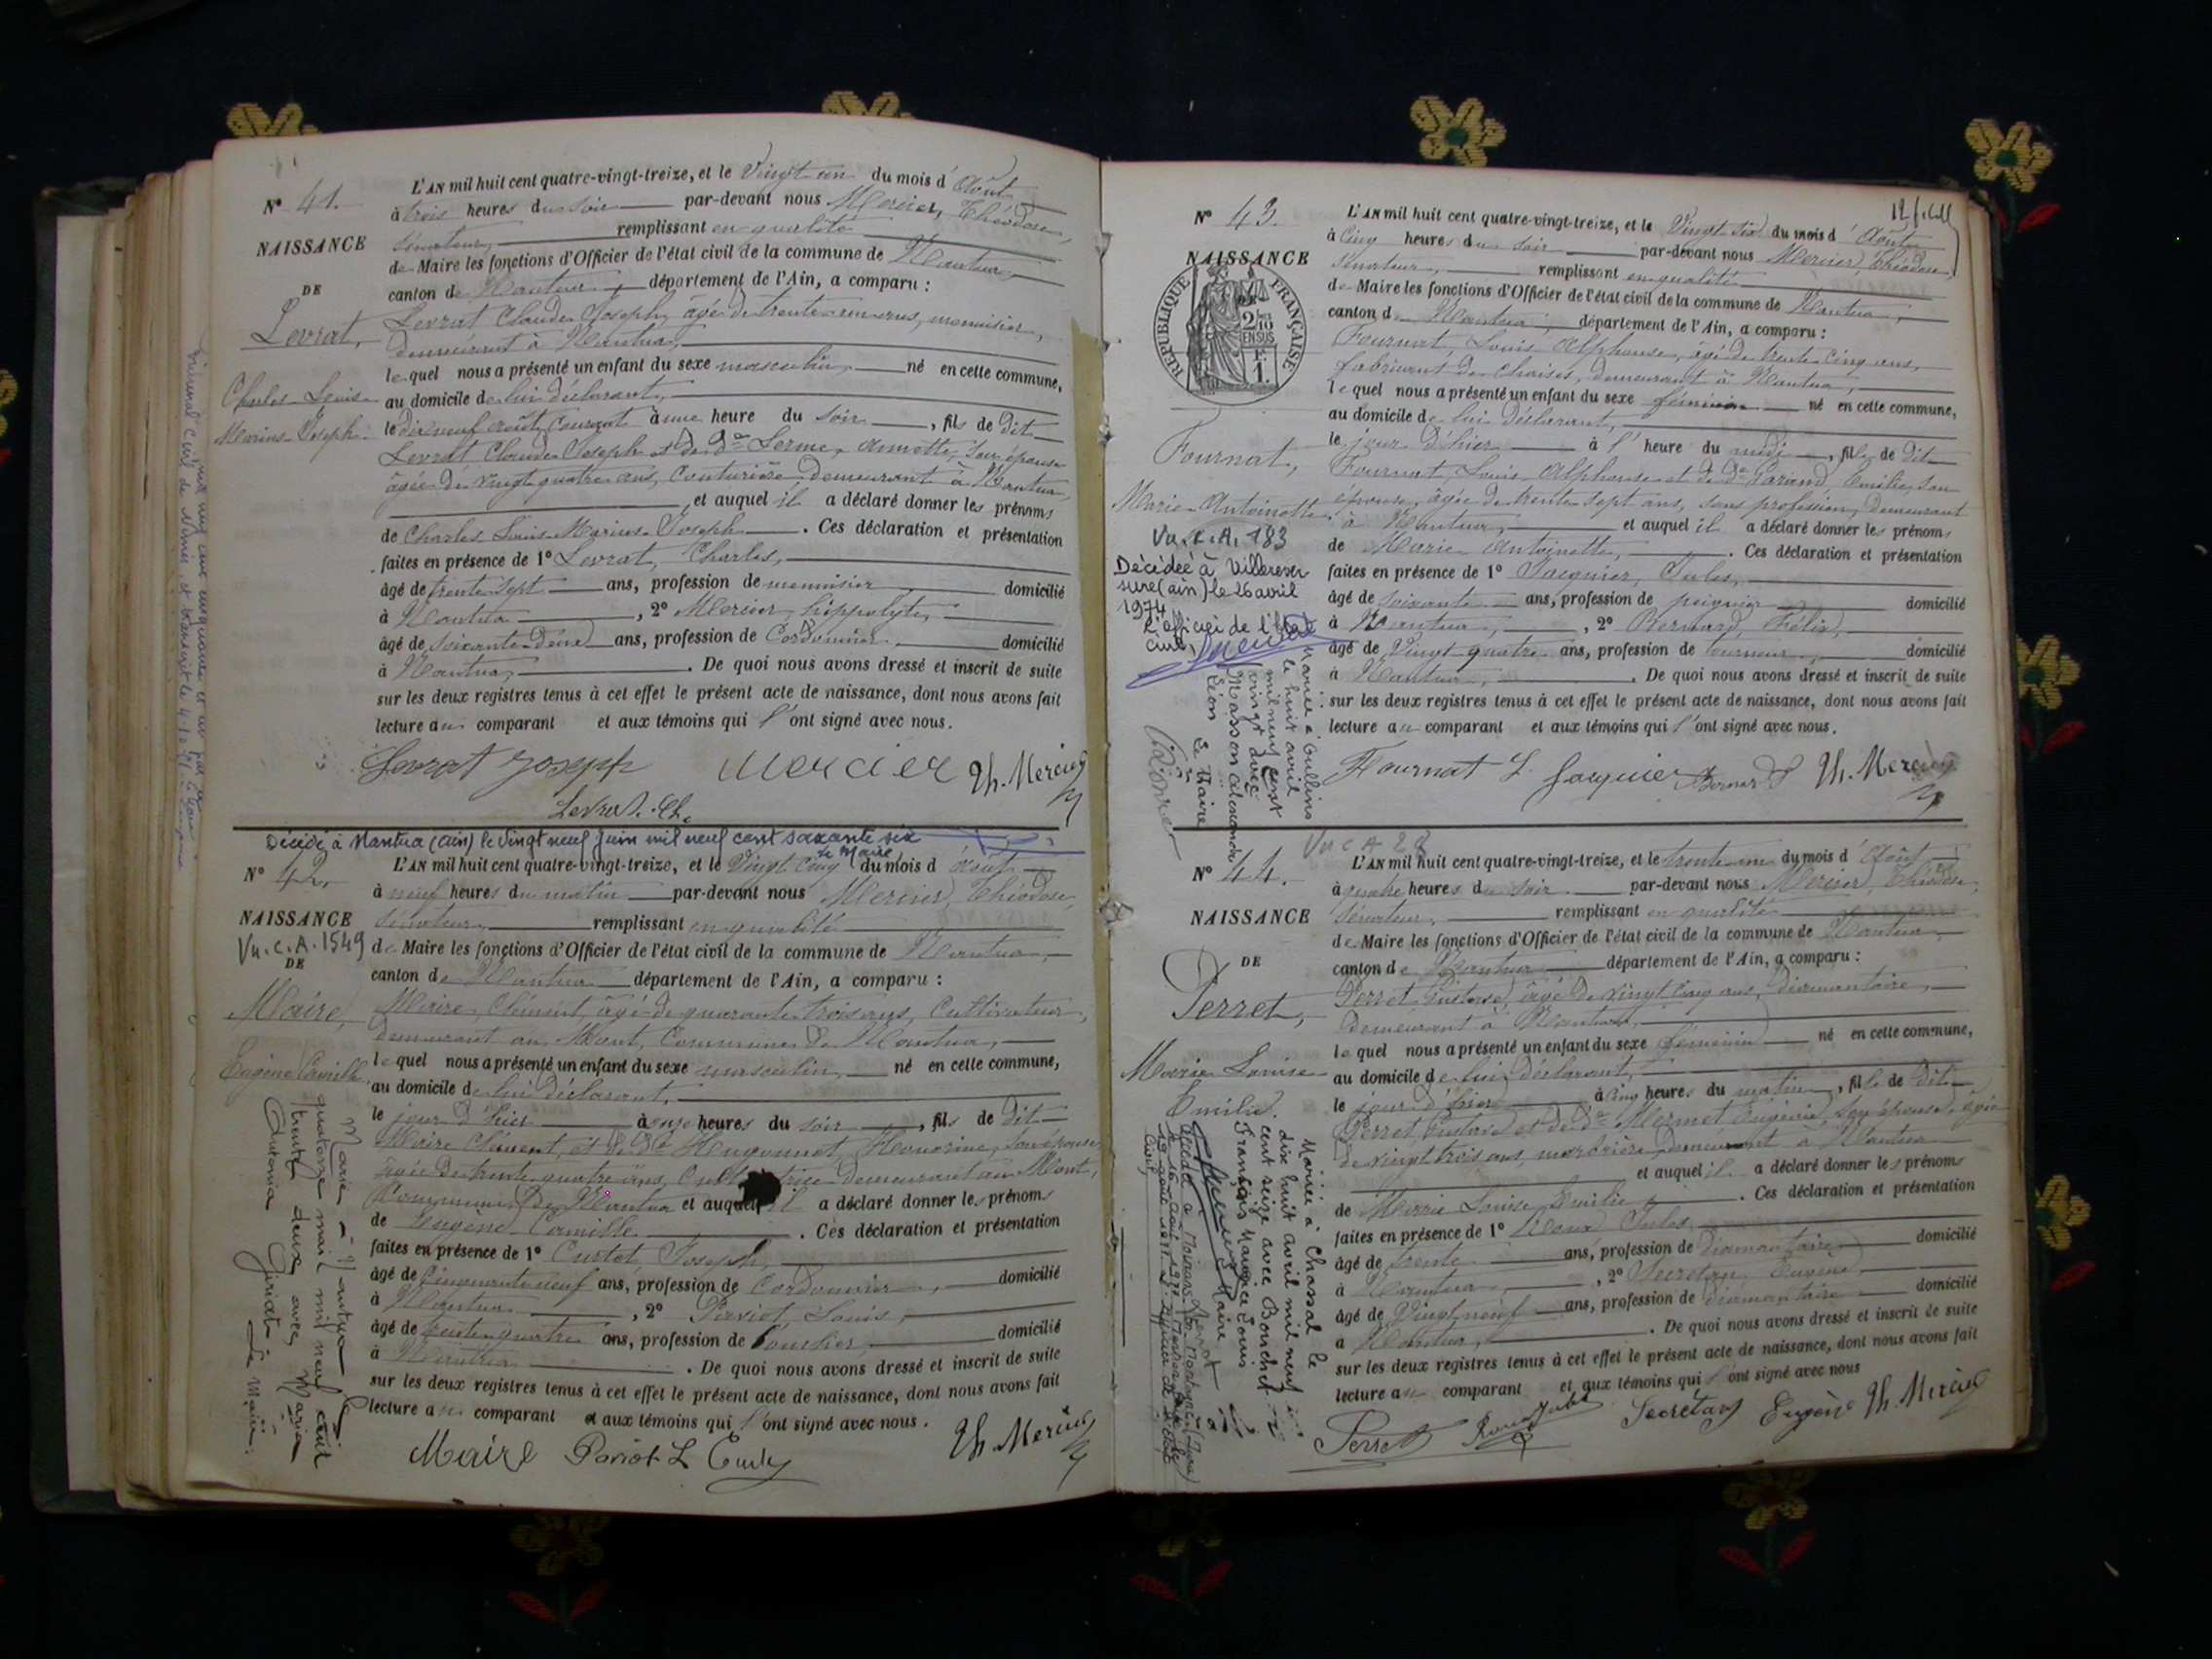 N° 41.
NAISSANCE
DE
Levrat,
Charles Louis
Marius Joseph
L'AN mil huit cent quatre-vingt-treize, et le Vingt un du mois d'Août
à trois heures du soir par-devant nous Mercier, Théodose,
Sénateur, remplissant en qualité
de Maire les fonctions d'Officier de l'état civil de la commune de Nantua,
canton de Nantua, département de l'Ain, a comparu :
Levrat Claude Joseph, âgé de trente un ans, menuisier,
demeurant à Nantua,
lequel nous a présenté un enfant du sexe masculin, né en cette commune,
au domicile de lui déclarant,
le dix neuf août courant à une heure du soir, fils de dit
Levrat Claude Joseph et de De Serme, Annette, son épouse
âgée de vingt quatre ans, Couturière demeurant à Nantua,
et auquel il a déclaré donner les prénoms
de Charles Louis Marius Joseph. Ces déclaration et présentation
faites en présence de 1° Levrat, Charles,
âgé de trente sept ans, profession de menuisier, domicilié
à Nantua, 2° Mercier, hippolyte,
âgé de soixante ans, profession de Cordonnier, domicilié
à Nantua, . De quoi nous avons dressé et inscrit de suite
sur les deux registres tenus à cet effet le présent acte de naissance, dont nous avons fait
lecture au comparant et aux témoins qui l'ont signé avec nous.
Levrat Joseph Mercier Th. Mercier
Levrat. Ch.
Décédé à Nantua (ain) le vingt neuf juin mil neuf cent soixante six
le Maire
N° 42.
NAISSANCE
Vu. C. A. 1549
DE
Maire,
Eugène Camille
Marié à Nantua le
quatorze mai mil neuf cent
trente deux avec Maria
Antonia Girod Le Maire.
L'AN mil huit cent quatre-vingt-treize, et le Vingt cinq du mois d'Août
à neuf heures du matin par-devant nous Mercier, Théodose,
Sénateur, remplissant en qualité
de Maire les fonctions d'Officier de l'état civil de la commune de Nantua,
canton de Nantua département de l'Ain, a comparu :
Maire, Clément, âgé de quarante trois ans, Cultivateur,
demeurant au Mont, Commune de Nantua,
lequel nous a présenté un enfant du sexe masculin, né en cette commune,
au domicile de lui déclarant,
le jour d'hier à onze heures du soir, fils de dit
Maire Clément, et de De Hugonnet, Honorine, son épouse
âgée de trente quatre ans, demeurant au Mont,
Commune de Nantua et auquel il a déclaré donner les prénoms
de Eugène Camille. Ces déclaration et présentation
faites en présence de 1° Curtet, Joseph,
âgé de Cinquante neuf ans, profession de Cordonnier, domicilié
à Nantua, 2° Pariot, Louis,
âgé de trente quatre ans, profession de boucher, domicilié
à Nantua. De quoi nous avons dressé et inscrit de suite
sur les deux registres tenus à cet effet le présent acte de naissance, dont nous avons fait
lecture au comparant et aux témoins qui l'ont signé avec nous.
Maire Pariot L Th. Mercier
N° 43.
NAISSANCE
RÉPUBLIQUE FRANÇAISE
2/10 EN SUS
1 F.
Fournat,
Marie Antoinette
Vu. C. A. 183
Décédée à Villereversure
(ain) le 26 avril
1974
L'officier de l'Etat
Civil,
Mariée à Oullins
le huit avril
mil neuf cent
vingt avec
Masson Alexandre
Léon Le Maire
L'AN mil huit cent quatre-vingt-treize, et le Vingt six du mois d'Août
à Cinq heures du soir par-devant nous Mercier, Théodose,
Sénateur, remplissant en qualité
de Maire les fonctions d'Officier de l'état civil de la commune de Nantua,
canton de Nantua, département de l'Ain, a comparu :
Fournat, Louis Alphonse, âgé de trente cinq ans,
fabricant de Chaises, demeurant à Nantua,
lequel nous a présenté un enfant du sexe féminin né en cette commune,
au domicile de lui déclarant,
le jour d'hier à l'heure du midi, fille de dit
Fournat, Louis Alphonse et de De Emilie, son
épouse, âgée de trente sept ans, sans profession, demeurant
à Nantua, et auquel il a déclaré donner les prénoms
de Marie Antoinette,. Ces déclaration et présentation
faites en présence de 1° Jacquier, Jules,
âgé de soixante ans, profession de peignier domicilié
à Nantua, 2° Bernard, Félix,
âgé de Vingt quatre ans, profession de tourneur, domicilié
à Nantua,. De quoi nous avons dressé et inscrit de suite
sur les deux registres tenus à cet effet le présent acte de naissance, dont nous avons fait
lecture au comparant et aux témoins qui l'ont signé avec nous.
Fournat L. Jacquier Bernard Th. Mercier
N° 44.
NAISSANCE
DE
Perret,
Marie Louise
Emilie.
Mariée à Chassal le
dix huit avril mil neuf
cent seize avec Bouchet
François Maurice Louis
L'AN mil huit cent quatre-vingt-treize, et le trente un du mois d'Août
à quatre heures du soir par-devant nous Mercier, Théodose,
Sénateur, remplissant en qualité
de Maire les fonctions d'Officier de l'état civil de la commune de Nantua,
canton de Nantua département de l'Ain, a comparu :
Perret Gustave, âgé de vingt cinq ans, diamantaire,
demeurant à Nantua,
lequel nous a présenté un enfant du sexe féminin né en cette commune,
au domicile de lui déclarant,
le jour d'hier à cinq heures du matin, fille de dit
Perret Gustave et de De Mermet Eugénie, son épouse, âgée
de vingt trois ans, demeurant à Nantua
et auquel il a déclaré donner les prénoms
de Marie Louise Emilie. Ces déclaration et présentation
faites en présence de 1° Roux Jules
âgé de trente ans, profession de diamantaire domicilié
à Nantua, 2° Secretan, Eugène
âgé de Vingt neuf ans, profession de diamantaire domicilié
à Nantua,. De quoi nous avons dressé et inscrit de suite
sur les deux registres tenus à cet effet le présent acte de naissance, dont nous avons fait
lecture au comparant et aux témoins qui l'ont signé avec nous
Perret Roux Jules Secrétan Eugène Th. Mercier